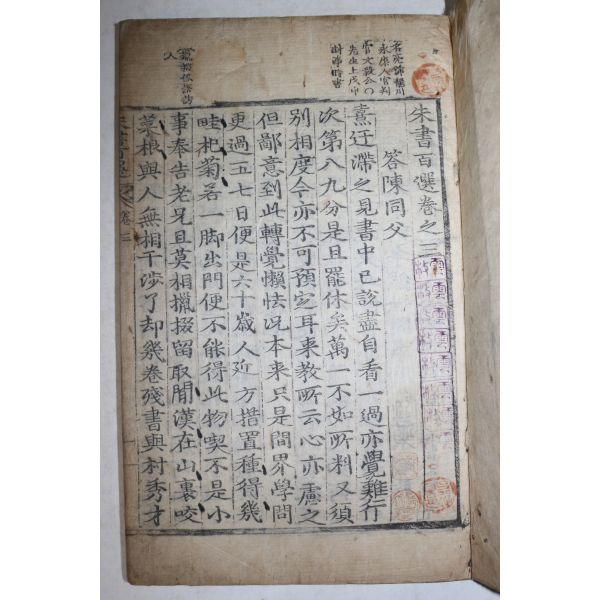 朱書百選卷之三
答陳同父
熹迂滯之見書中已說盡自看一過亦覺難行
次第八九分是且罷休矣萬一不如所料又須
別相度今亦不可預定耳來教所云心亦慮之
但鄙意到此轉覺懶怯況本來只是間界學問
更過五七日便是六十歲人近方措置種得幾
畦杞菊若一脚出門便不能得此物喫不是小
事奉告老兄且莫相攛掇留取閒漢在山裏咬
菜根與人無相干涉了却幾卷殘書與村秀才
名亮號龍川
永康人官判
先生上戊申
封事時書